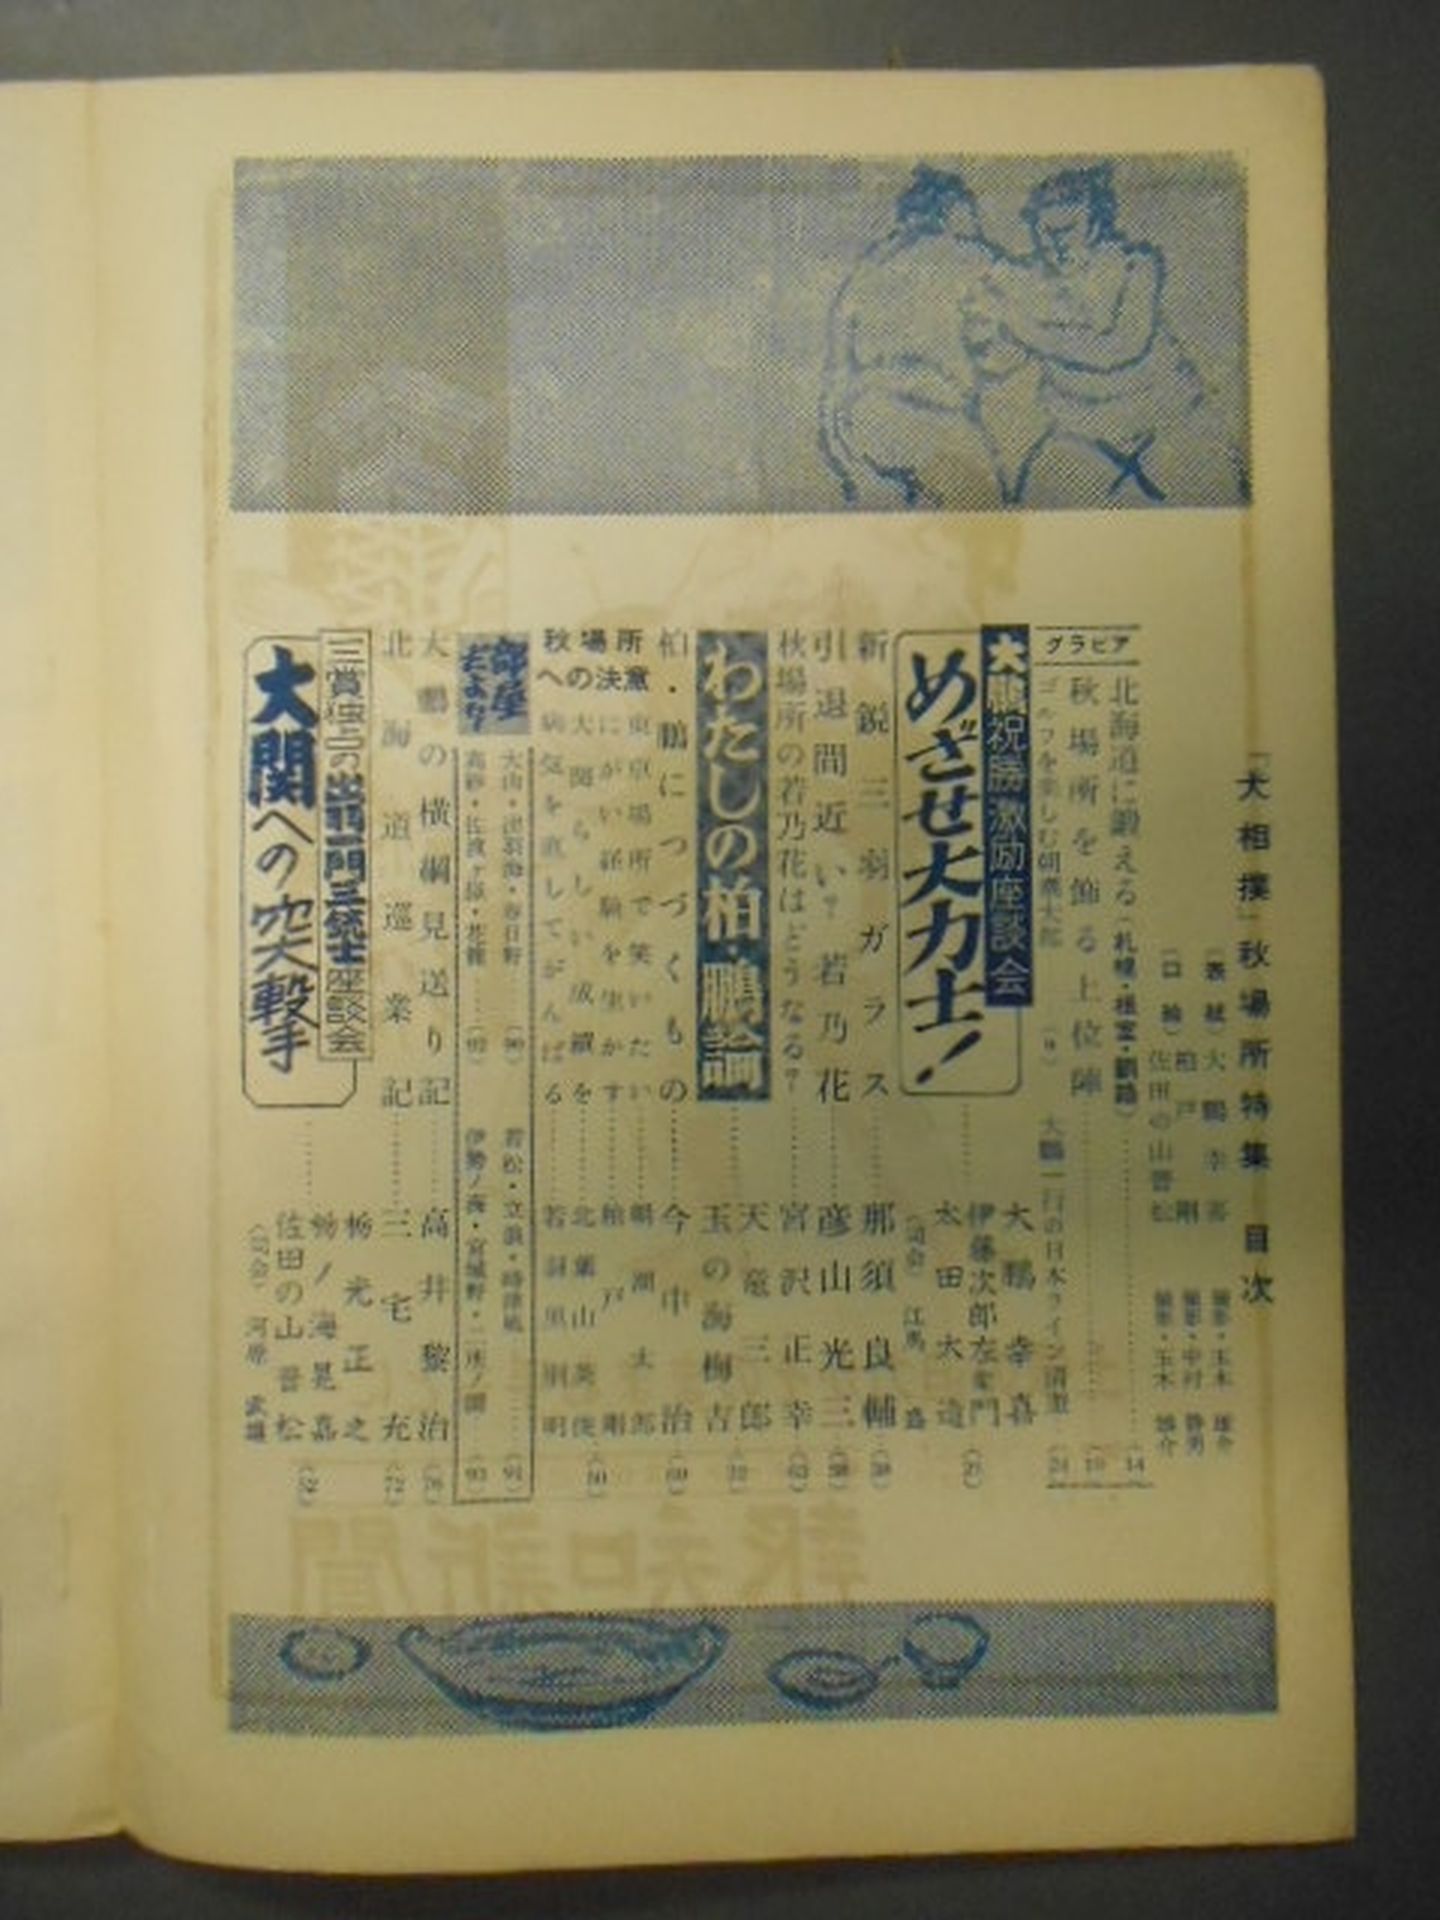 「大相撲」秋場所特集 目次
(表紙) 大鵬幸喜 撮影・玉木雄介
柏戸剛 撮影・中村静男
(口絵) 佐田の山晋松 撮影・玉木雄介
グラビア
北海道に鍛える(札幌・根室・釧路) 14
秋場所を飾る上位陣 10
ゴルフを楽しむ朝潮太郎 (9)
大鵬一行の日本ライン清遊 24
大鵬祝勝激励座談会
めざせ大力士!
大鵬幸喜
伊藤次郎左衛門
太田大造
(司会) 江馬盛
新鋭三羽ガラス 那須良輔
引退間近い?若乃花 彦山光三
秋場所の若乃花はどうなる? 宮沢正幸 (63)
わたしの柏・鵬論
天竜三郎
玉の海梅吉
柏・鵬につづくもの 今中治 (60)
秋場所への決意
東京場所で笑いたい 朝潮太郎
にがい経験を生かす 柏戸剛
大関らしい成績を 北葉山英俊
病気を直してがんばる 若羽黒朋明
部屋だより
大山・出羽海・春日野 (90)
若松・立浪・時津風 (91)
高砂・佐渡ヶ嶽・花籠 (92)
伊勢ノ海・宮城野・二所ノ関 (93)
大鵬の横綱見送り記 高井黎治 (76)
北海道巡業記 三宅充 (72)
三賞独占の出羽一門三銃士座談会
大関への突撃
栃光正之
栃ノ海晃嘉
佐田の山晋松
(司会) 河原武雄
(52)
報知新聞